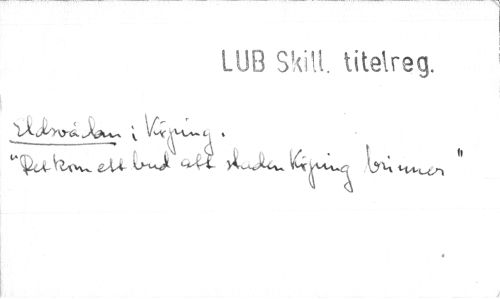 LUB Skill. titelreg.
Eldsvådan i Köping.
"Det kom ett bud att staden Köping brinner"